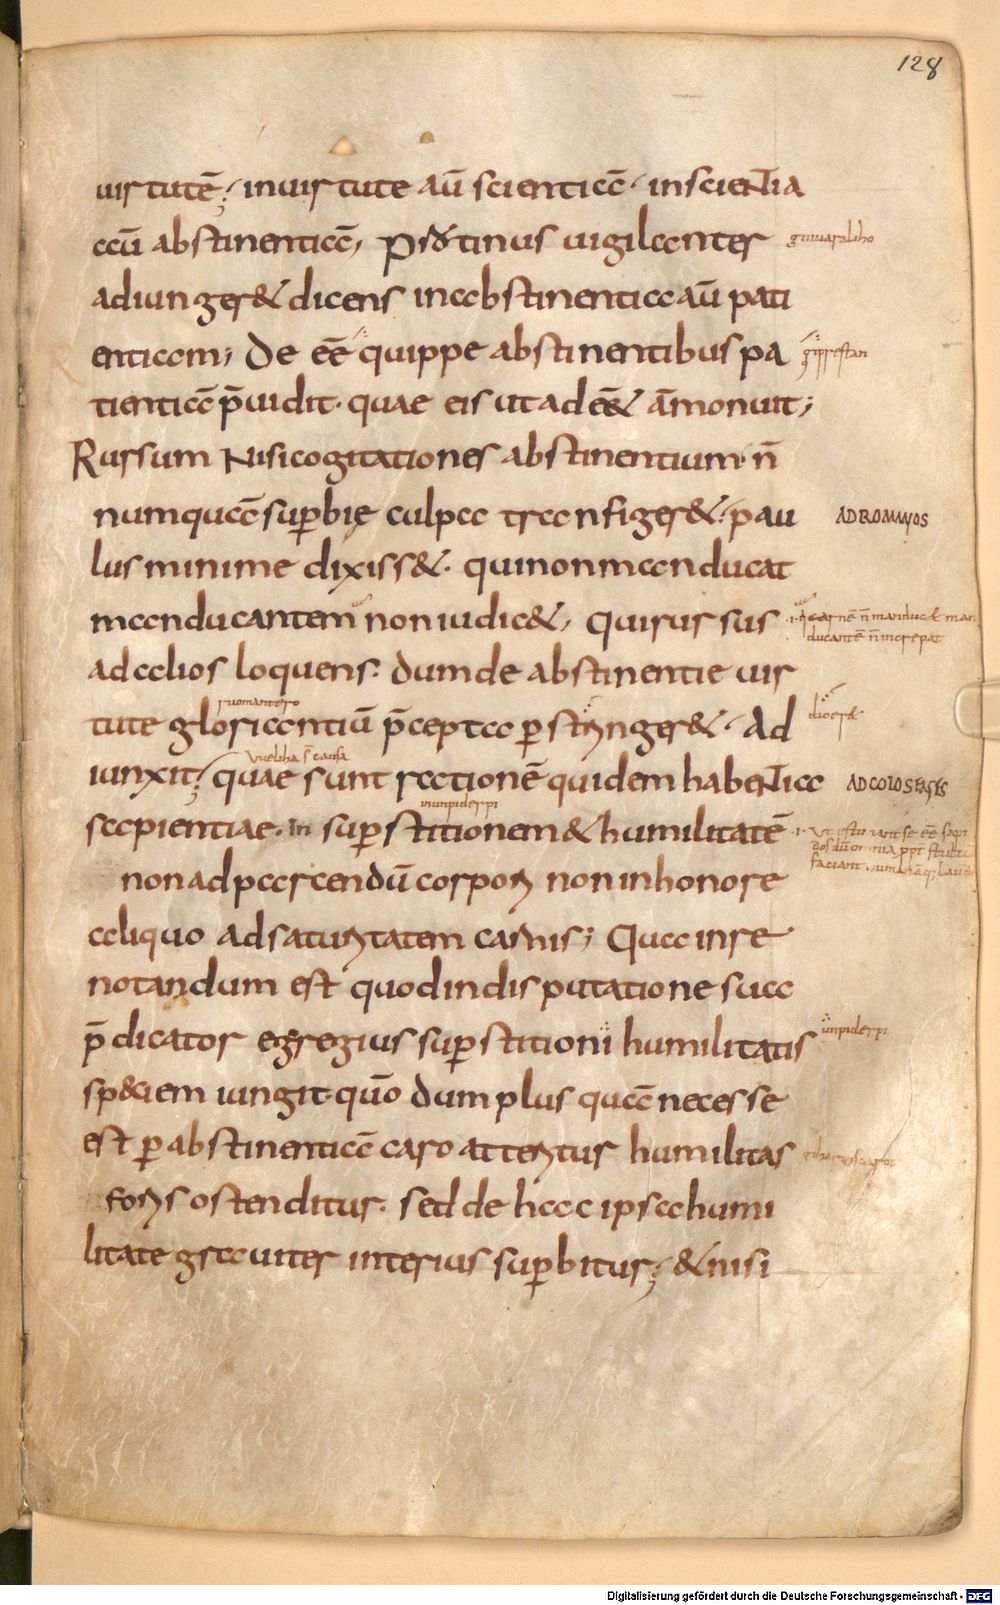 128
uirtutē; inuirtute aū scientiā. inscientia
aū abstinentiā, Protinus uigilanter
giuuaralihho
adiunger& dicens inabstinentia aū pati
entiam; De eē quippe abstinentibus pa
tientiā p̄uidit. quae eis ut adeēt ām̄onuit;
Rursum Nisi cogitationes abstinentium n̄
numquā sup̱bię culpa transfiger&. pau
AD ROMANOS
lus minime dixiss&. qui non manducat
manducantem non iudic&, Qui rursus
.i. qui carnē n̄ manduc& man
ducantē n̄ increpat
ad alios loquens. dum de abstinentie uir
tute gloriantiū p̄cepta perstringer&. Ad
iunxit; quae sunt rationē quidem habentia
AD COLOSENSES
sapientiae. In sup̱stitionem & humilitatē
non ad parcendū corpori non in honore
aliquo ad saturitatem carnis; Qua in re
notandum est quod in disputatione sua
p̄dicator egregius sup̱stitioni humilitatis
unpiderpi
sp&iem iungit. quō dum plus quā necesse
est p̱ abstinentiā caro atteritur humilitas
foris ostenditur. sed de hac ipsa humi
litate grauiter interius sup̱bitur; & nisi
Digitalisierung gefördert durch die Deutsche Forschungsgemeinschaft - DFG